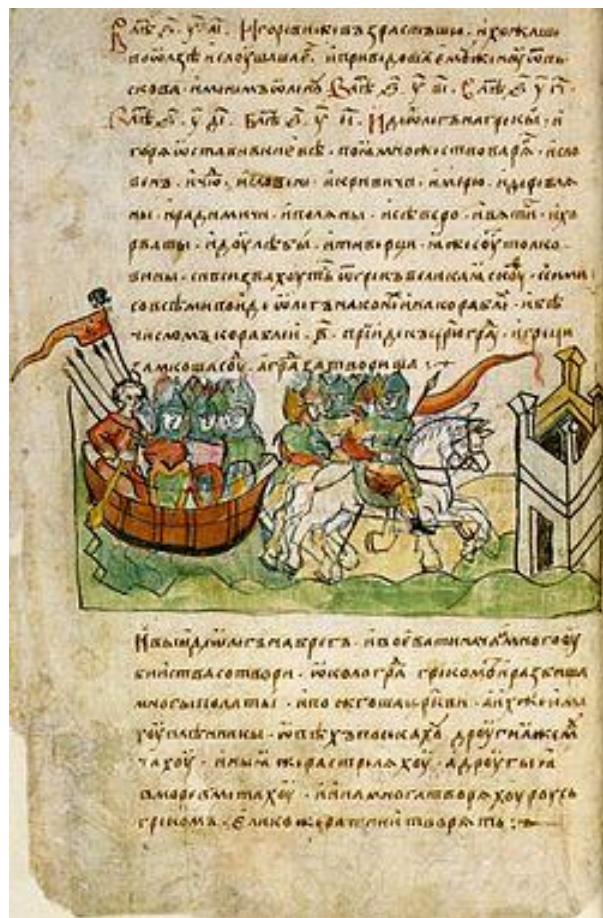 В лѣ҃ ҂ѕ҃ . у҃ аі҃ . Игореви же възрастъшю . и хожаше
по ѡлзѣ и слоушаше е҃ . и приведоша емоу женоу ѿ пь
скова . именемъ ѡленоу . В лѣ҃ ҂ѕ҃ . у҃ ві҃ . В лѣ҃ ҂ѕ҃ . у҃ гі҃ .
В лѣ҃ ҂ѕ҃ . у҃ ді҃ . В лѣ҃ ҂ѕ҃ . у҃ еі҃ . Иде ѡлегъ на грекы . и
горѧ ѡставивъ киевѣ . поꙗ множество варѧ҃ . и сло
венъ . и чю҃ . и словене . и кривичи . и мерю . и деревлѧ
ны . и радимичи . и полѧны . и сѣверо . и вѧтичи . и хо
рваты . и доулѣбы . и тиверци . ꙗже соуть толко
вины . си вси звахоуть ѿ грекъ великаꙗ скоу҃ . с сими
со всѣми поиде ѡлегъ на конѣ и на кораблѣ . и бѣ
числомъ кораблеи . ҂в҃ . прииде къ цр҃югра҃ . и греци
замкоша соу҃ . а гра҃ затвориша
И выиде ѡлегъ на брегъ . и воевати нача . и много оу
бииства сотвори . ѡколо гра҃ грекомъ . и разбиша
многы полаты . и пожгоша цр҃кви . а и҃ же има
хоу плѣнникы . ѡвѣхъ посѣкахоу дроугиꙗ же мѹ
чахоу . иныꙗ же растрелѧхоу . а дроугыꙗ
в море вметахоу . и ина многа творѧхоу роусь
грекомъ . елико же ратнии творѧть